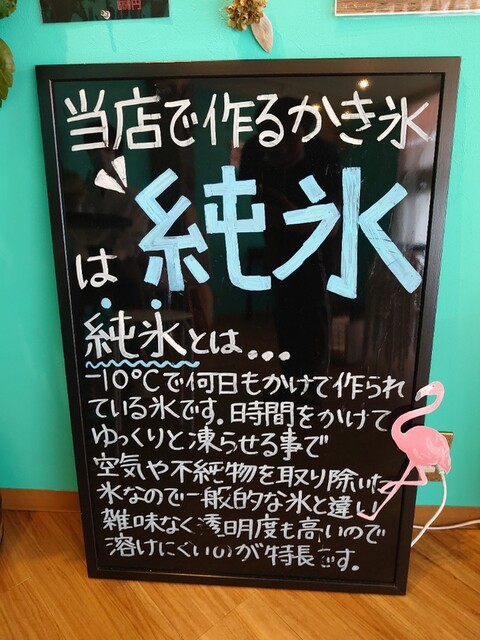 当店で作るかき氷
は純氷
純氷とは...
-10℃で何日もかけて作られ
ている氷です。時間をかけて
ゆっくりと凍らせる事で
空気や不純物を取り除いた
氷なので一般的な氷と違い
雑味なく透明度も高いので
溶けにくいのが特長です。